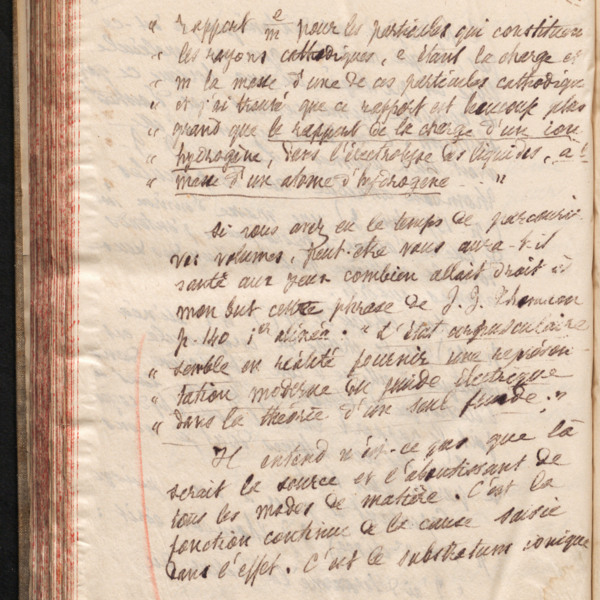 " rapport e/m pour les particules qui constituent
" les rayons cathodiques, e étant la charge et
" m la masse d'une de ces particules cathodique
" et j'ai trouvé que ce rapport est beaucoup plus
" grand que le rapport de la charge d'un ion
" hydrogène, dans l'électrolyse des liquides, à l
" masse d'un atome d'hydrogène . . . "
Si vous avez eu le temps de parcourir
vos volumes, peut-être vous aura-t-il
sauté aux yeux combien allait droit à
mon but cette phrase de J. J. Thomson
p. 140 1er alinéa. " L'état corpusculaire
" semble en réalité fournir une représen-
" tation moderne du fluide électrique
" dans la théorie d'un seul fluide. "
Il entend n'est-ce pas que là
serait la source et l'aboutissant de
tous les modes de matière. C'est la
fonction continue de la cause saisie
dans l'effet. C'est le substratum ionique